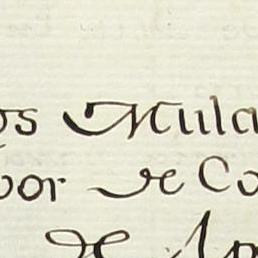 os Mula
por de Co
de Ap